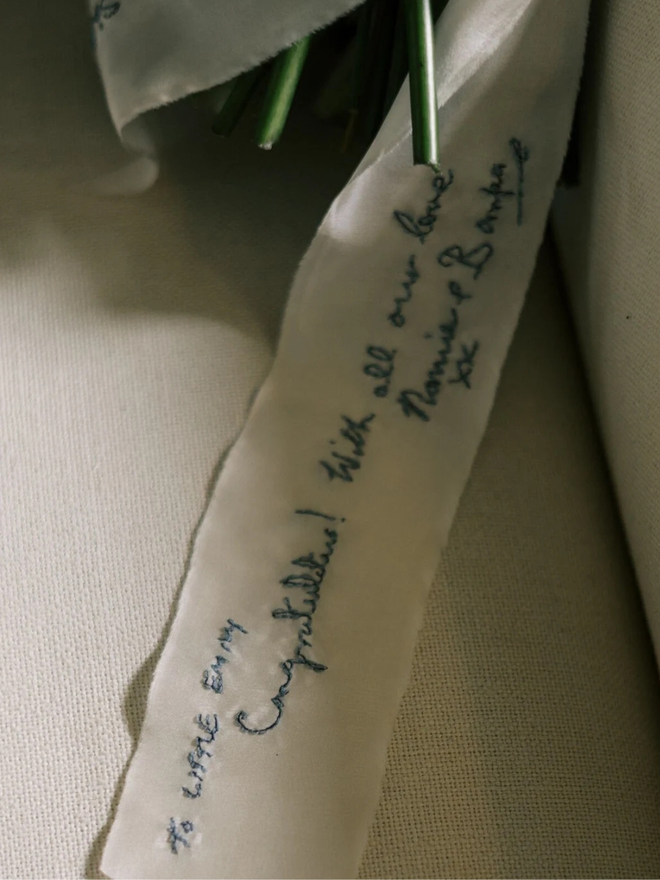 To LITTLE EMMY
Congratulations! With all our love
Nannie & Bampa
xx